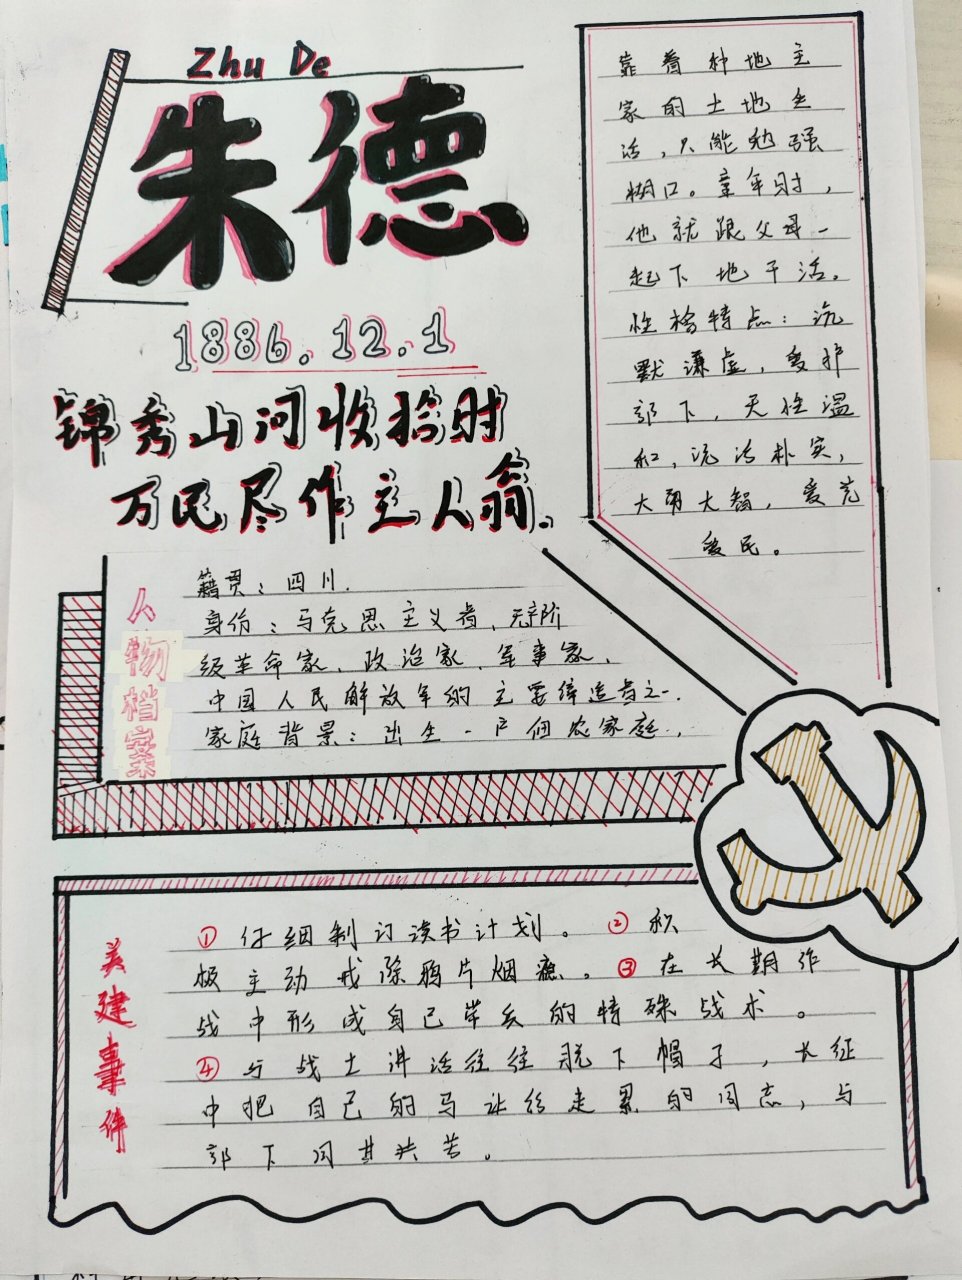 Zhu De
朱德
1886.12.1
锦秀山河收拾时
万民尽作主人翁.
人物档案
籍贯：四川.
身份：马克思主义者、无产阶
级革命家、政治家、军事家、
中国人民解放军的主要缔造者之一.
家庭背景：出生一户佃农家庭，
靠着种地主
家的土地生
活，只能勉强
糊口。童年时，
他就跟父母一
起下地干活。
性格特点：沉
默谦虚，爱护
部下，天性温
和，沉浩朴实，
大勇大智，爱兵
爱民。
美建事件
① 仔细制订读书计划。② 积
极主动戒除鸦片烟瘾。③ 在长期作
战中形成自己带兵的特殊战术。
④ 与战士讲话往往脱下帽子，长征
中把自己的马让给走累的同志，与
部下同甘共苦。